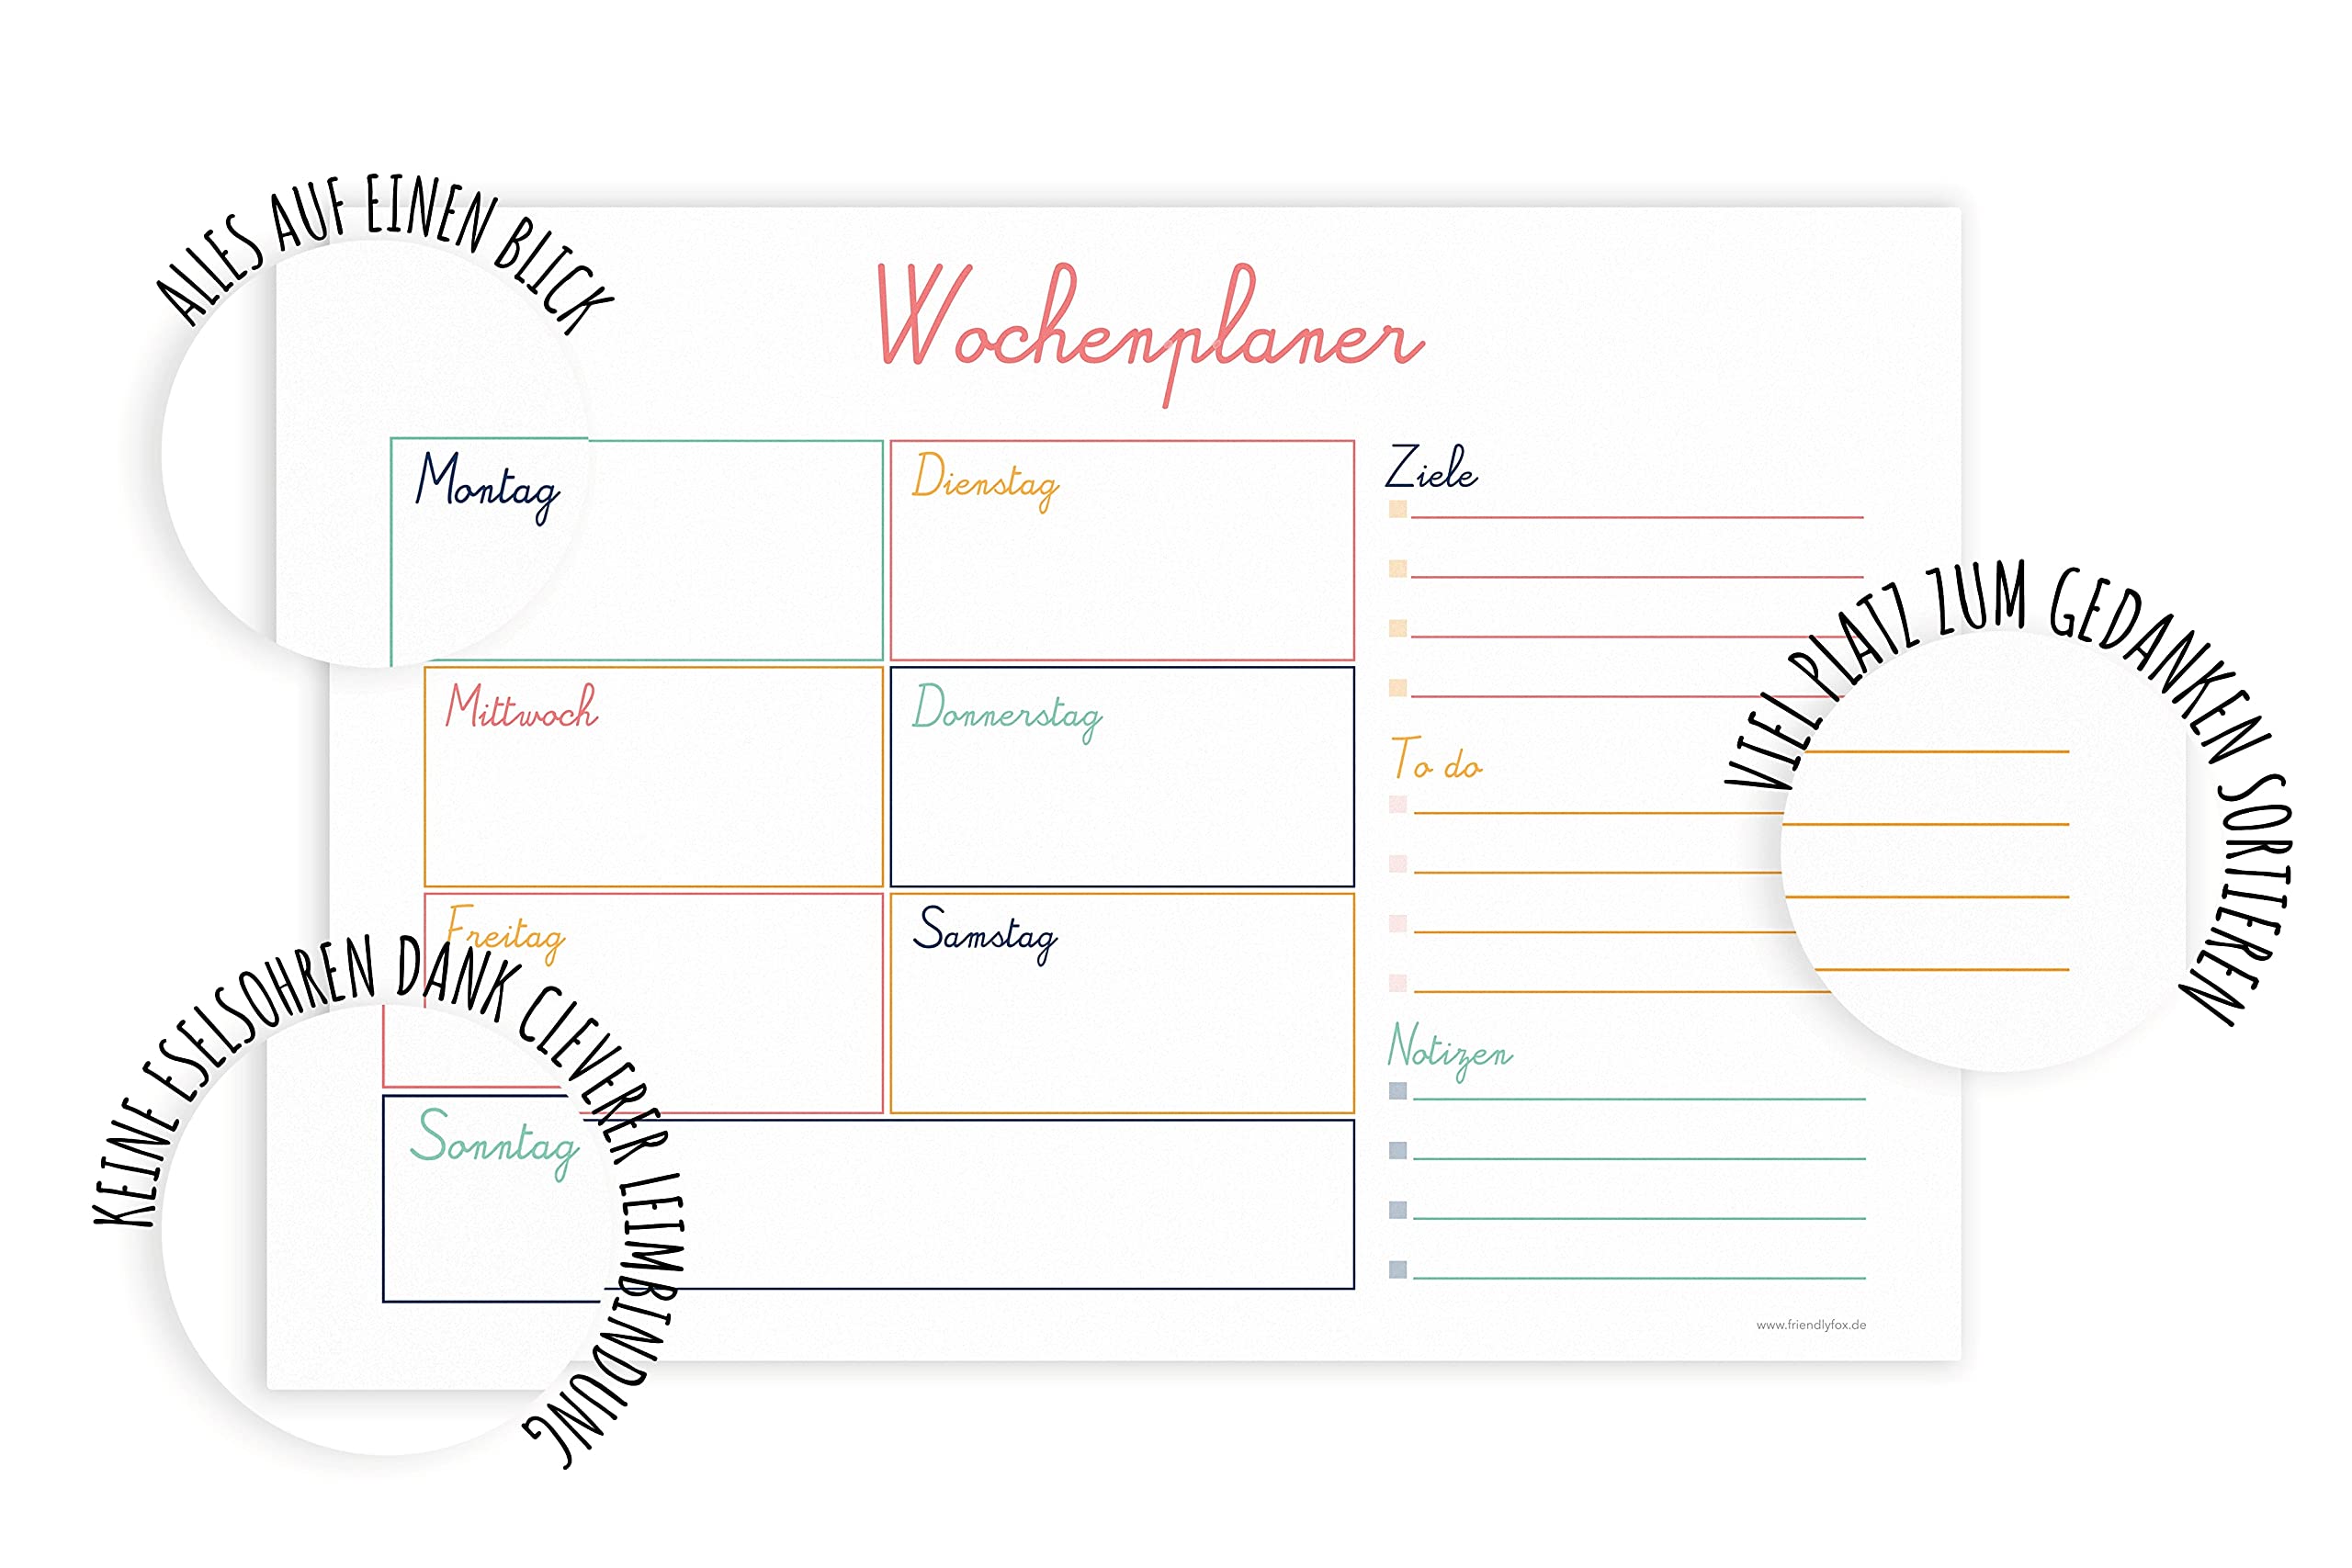 ALLES AUF EINEN BLICK
Wochenplaner
Montag
Dienstag
Mittwoch
Donnerstag
Freitag
Samstag
Sonntag
Ziele
To do
Notizen
VIEL PLATZ ZUM GEDANKEN SORTIEREN
KEINE ESELSOHREN DANK CLEVERER LEIMBINDUNG
www.friendlyfox.de